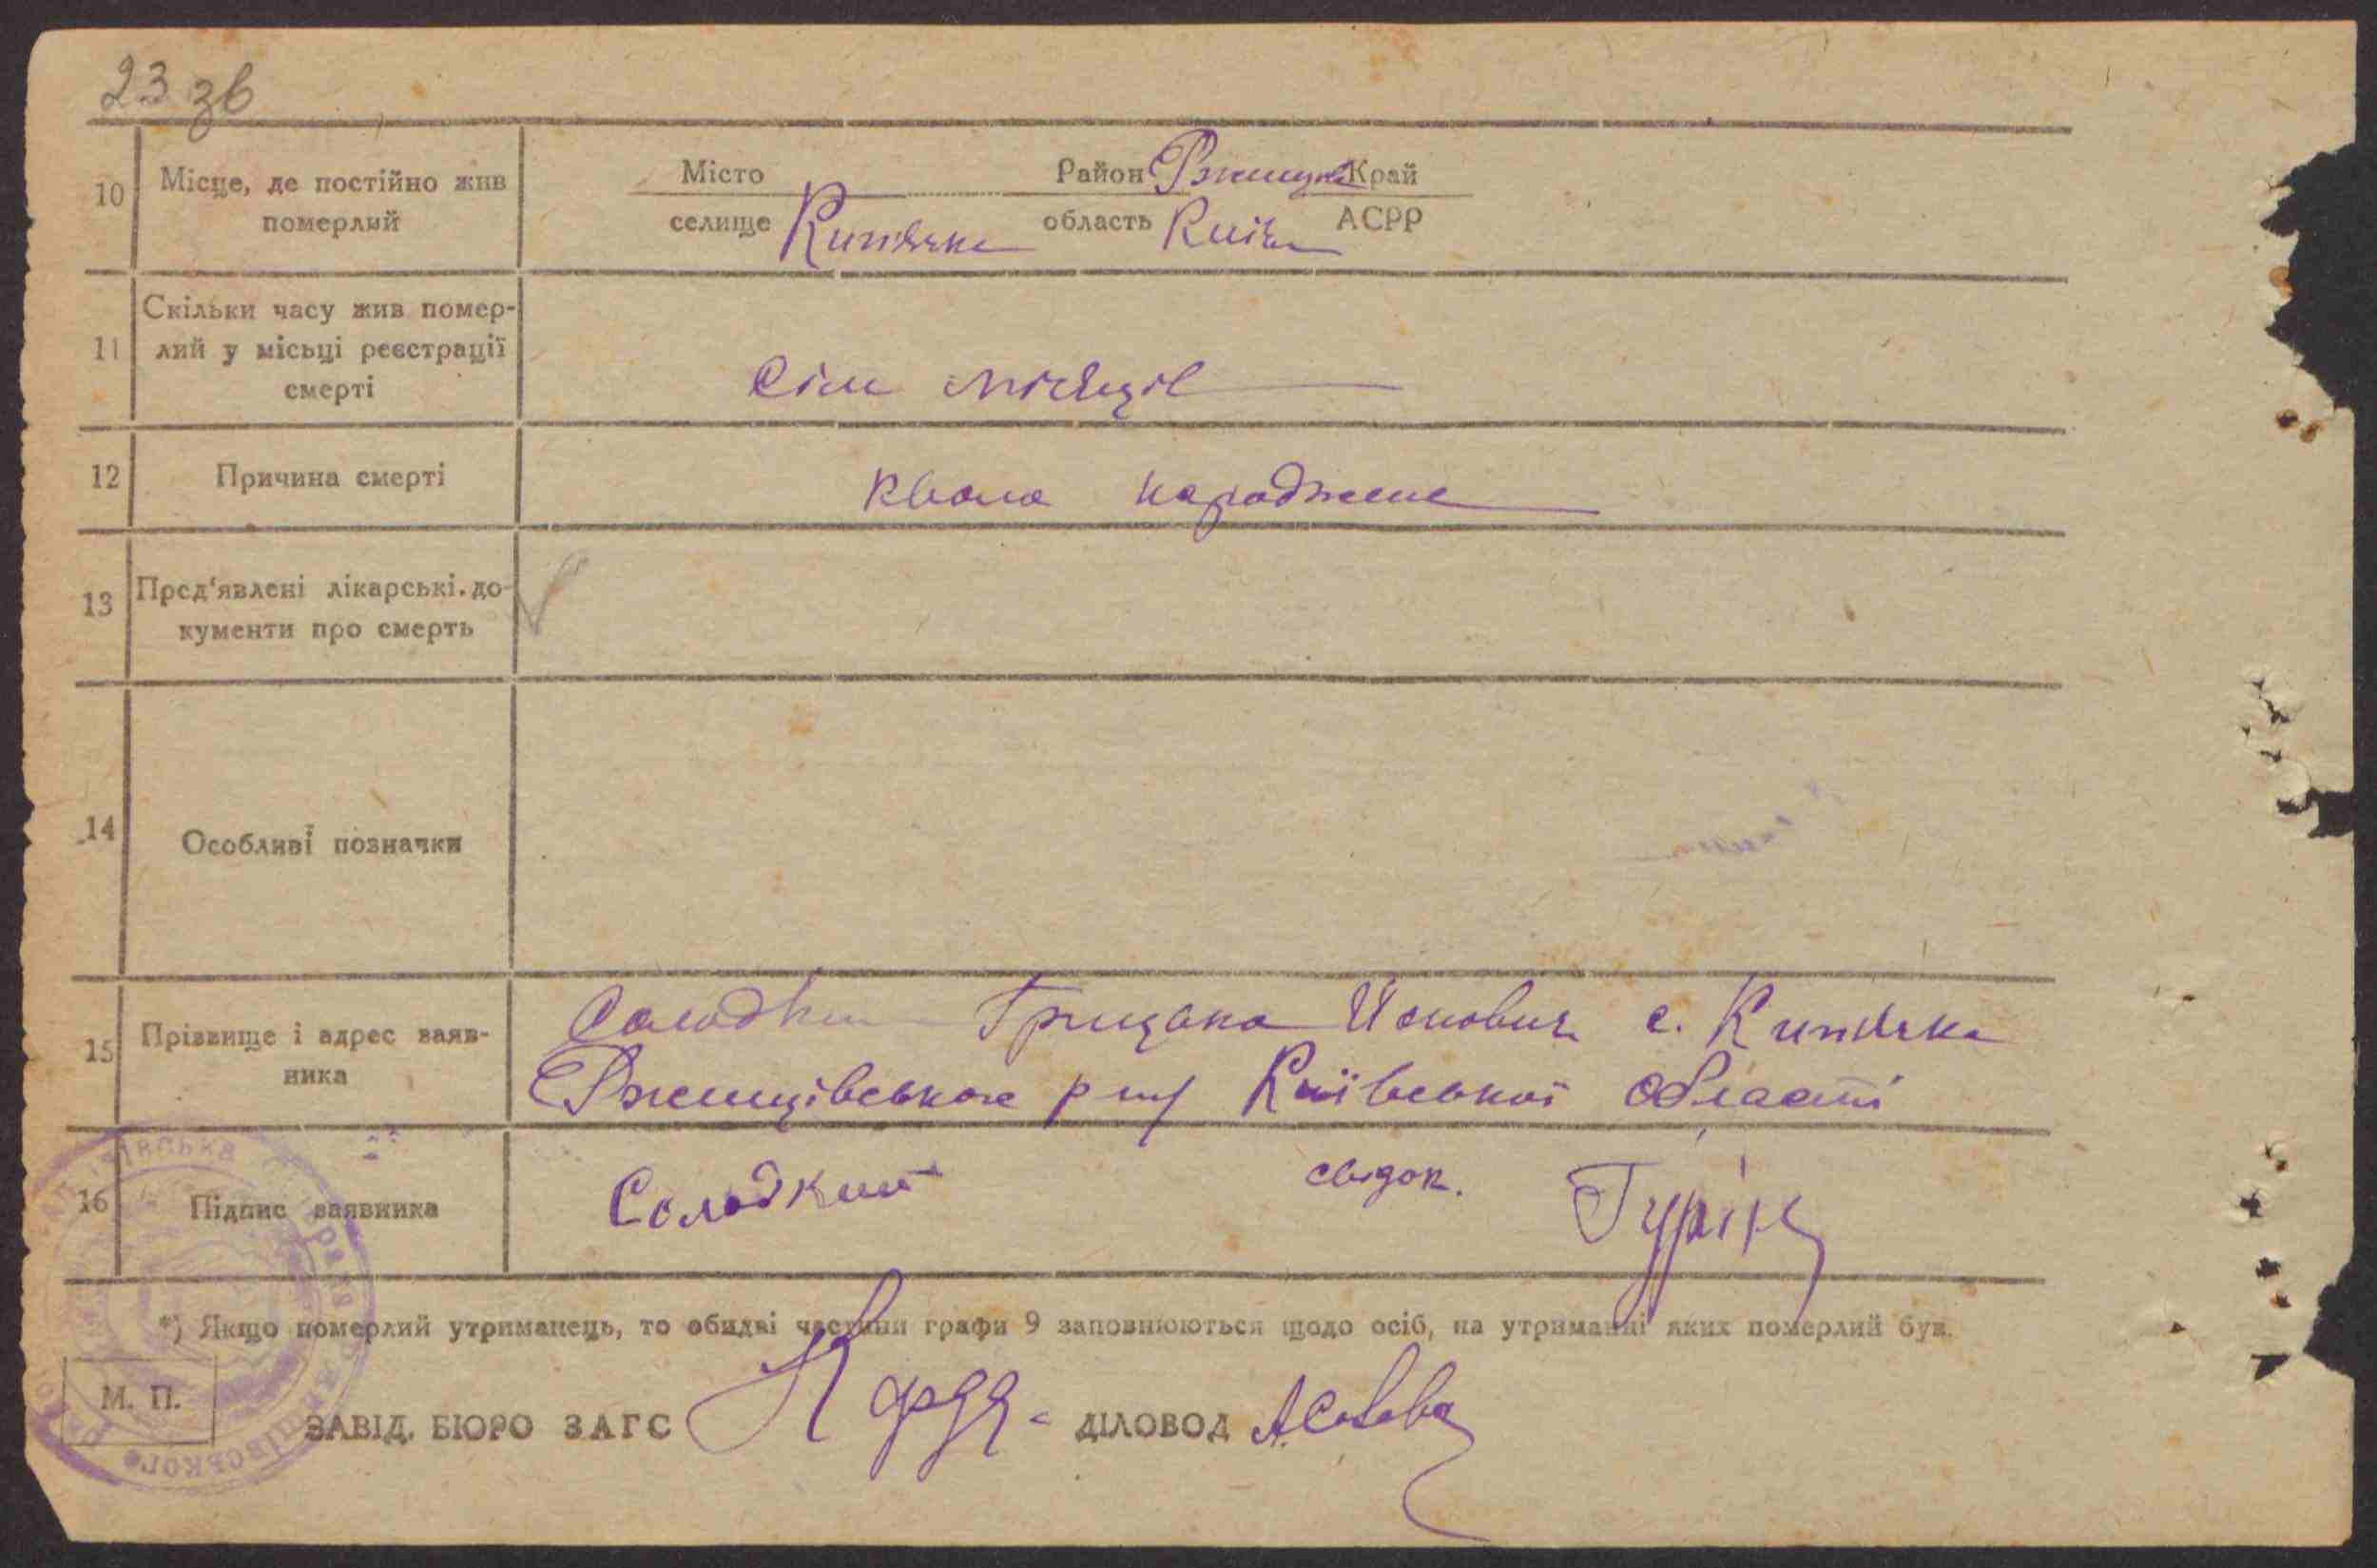 23 зв
10 Місце, де постійно жив померлий
Місто селище Кип'ячка Район Ржищів область Київ Край АСРР
11 Скільки часу жив помер-
лий у місьці реєстрації
смерті
Сім місяців
12 Причина смерті квола народжене
13 Пред'явлені лікарські до-
кументи про смерть
14 Особливі позначки
15 Прізвище і адрес заяв-
ника
Солодкий Грицана с. Кип'ячка
Ржищівського р-ну Київської області
16 Підпис заявника Солодкий свідок. Гурін
*) Якщо померлий утриманець, то обидві частини графи 9 заповнюються щодо осіб, на утриманні яких померлий був.
М. П.
ЗАВІД. БЮРО ЗАГС ДІЛОВОД